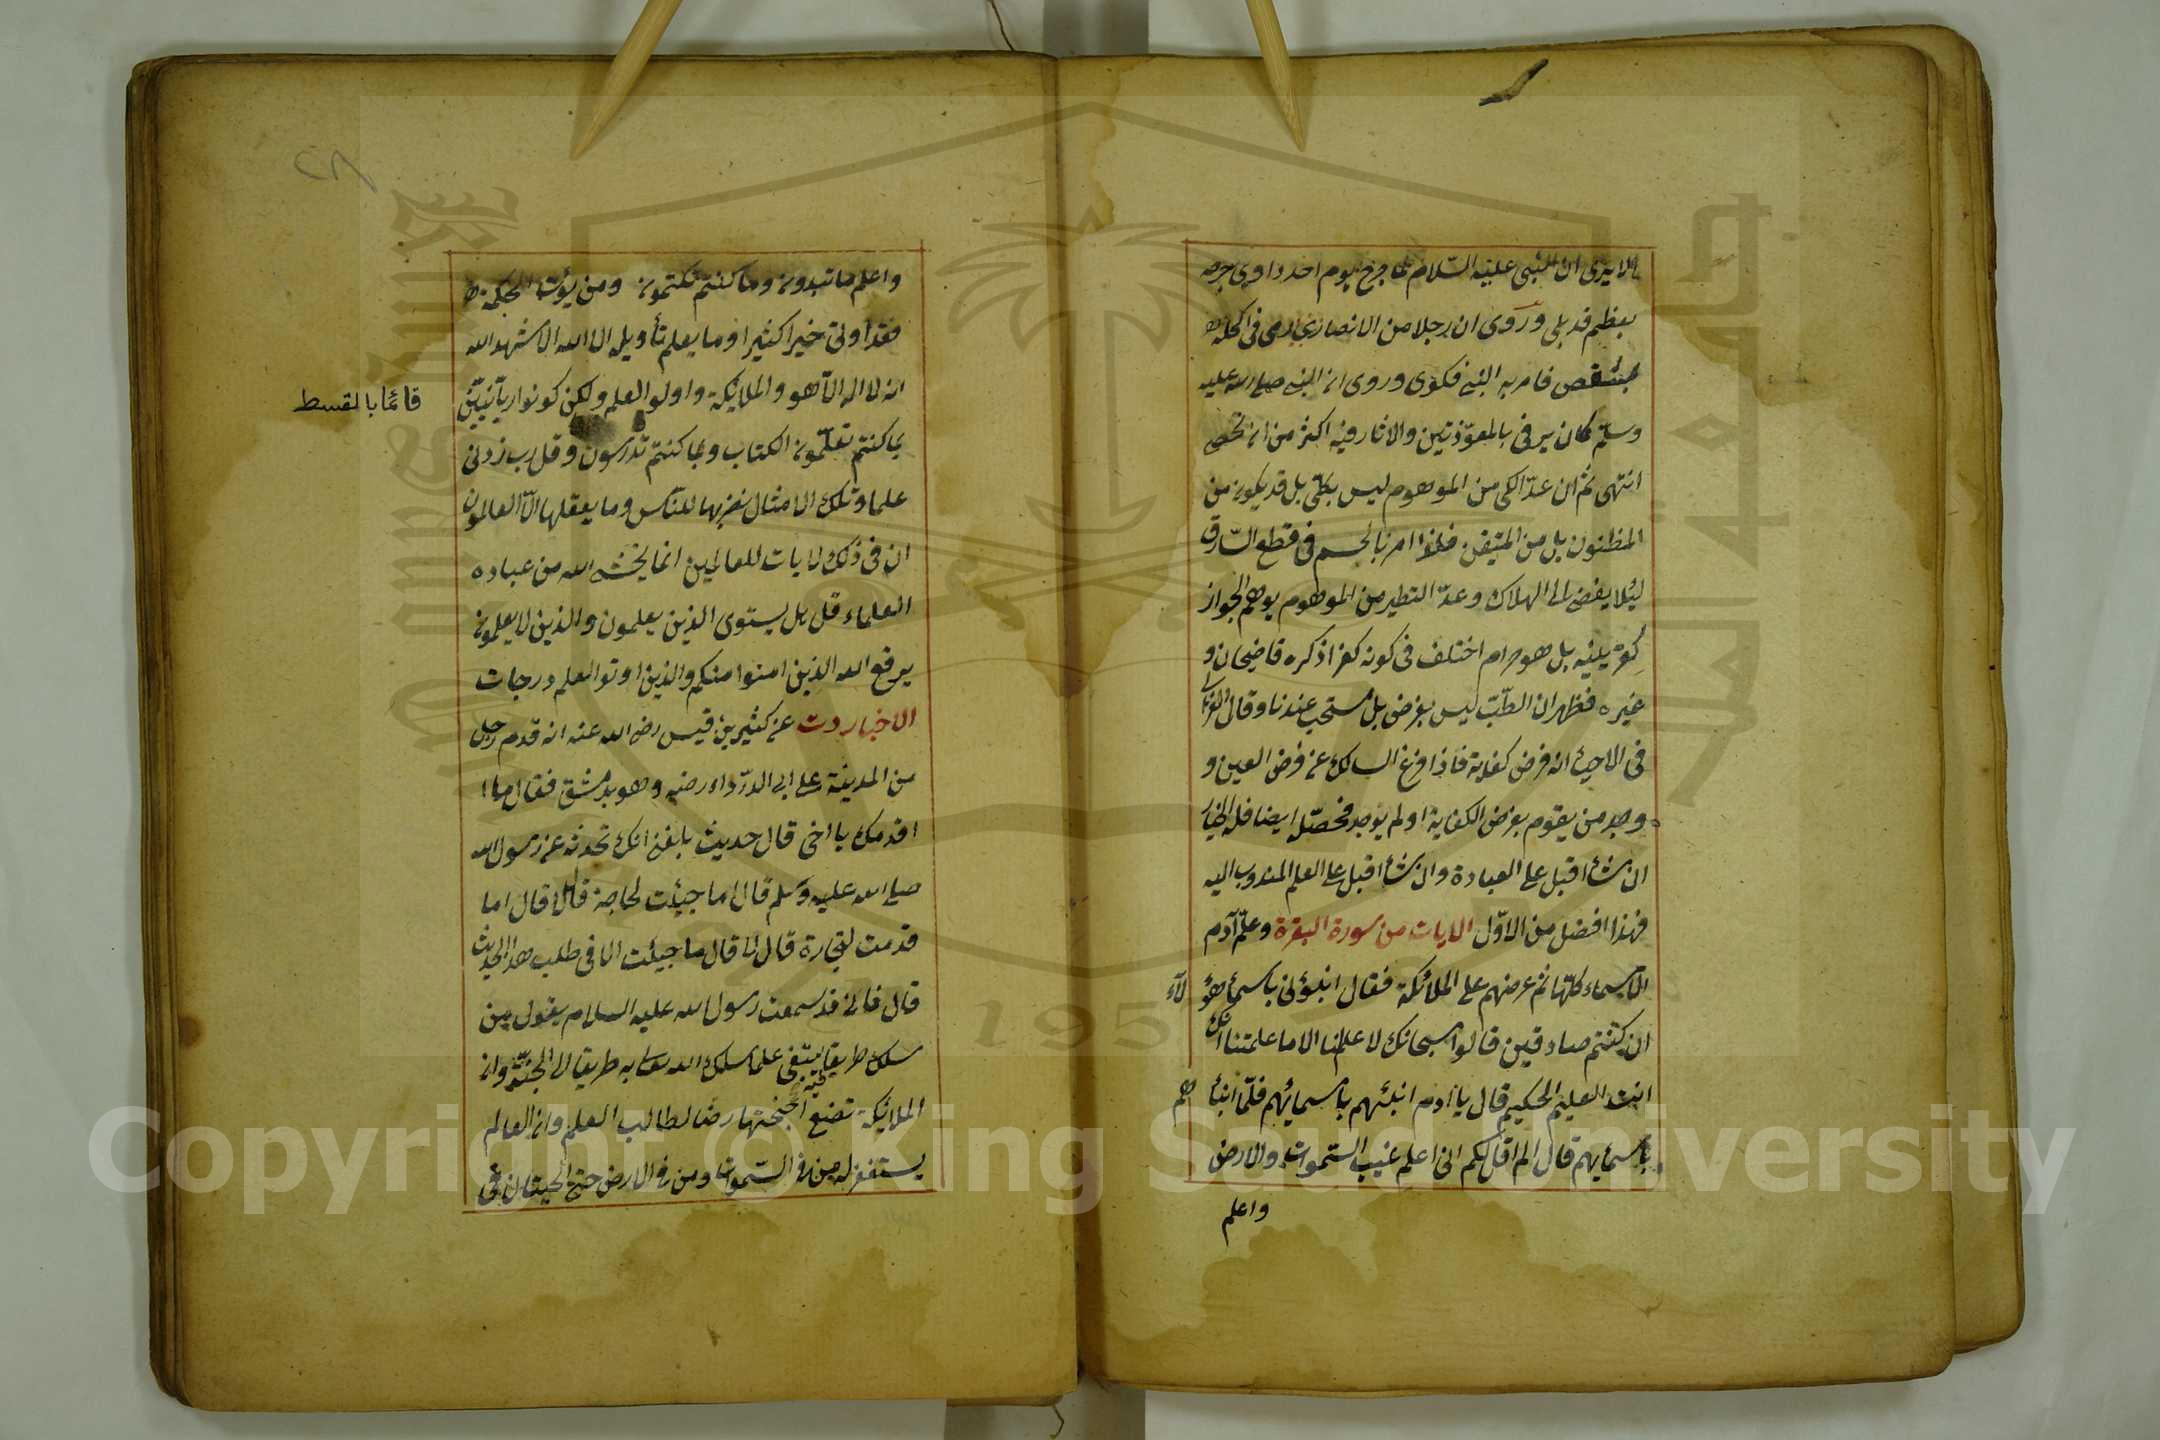 الا يرى ان النبي عليه السّلام لما جرح يوم احد داوى جرحه
بعظم قد بلى وروى ان رجلا من الانصار رمى فى اكحله
بمشقص فامر به النبى فكوى وروى ان النبى صلى الله عليه
وسلّم كان يرقى بالمعوّذتين والاثار فيه اكثر من ان تحصى
انتهى ثم ان عدّ الكى من الموهوم ليس بكلّى بل قد يكون من
المظنون بل من المتيقن فلذا امر بالحسم فى قطع السّارق
ليئلا يفضى الى الهلاك وعدّ التطير من الموهوم يوهم الجواز
كقرينيه بل هو حرام اختلف فى كونه كفرا ذكره قاضيخان و
غيره فظهر ان الطّبّ ليس بفرض بل مستحب عندنا وقال الغزالى
فى الاحياء انه فرض كفاية فاذا فرغ السالك عن فرض العين و
وجد من يقوم بفرض الكفاية او لم يوجد فحصّله ايضا فله الخيار
ان شاء اقبل على العبادة وان شاء اقبل على العلم المندوب اليه
فهذا افضل من الاوّل الايات من سورة البقرة وعلّم آدم
الاسماء كلّها ثم عرضهم على الملائكة فقال انبئونى باسماء هؤلاء
ان كنتم صادقين قالوا سبحانك لا علم لنا الا ما علمتنا انك
انت العليم الحكيم قال يا ادم انبئهم باسمائهم فلمّا انبأهم
باسمائهم قال الم اقل لكم انى اعلم غيب السّموات والارض
واعلم
٢٨
واعلم ما تبدون وما كنتم تكتمون ومن يؤت الحكمة
فقد اوتى خيرا كثيرا وما يعلم تأويله الا الله شهد الله
انه لا اله الا هو والملائكة واولو العلم ولكن كونوا ربّانيّين
قائما بالقسط
بما كنتم تعلّمون الكتاب وبما كنتم تدرسون وقل رب زدنى
علما وتلك الامثال نضربها للنّاس وما يعقلها الّا العالمون
ان فى ذلك لايات للعالمين انما يخشى الله من عباده
العلماء قل هل يستوى الذين يعلمون والذين لا يعلمون
يرفع الله الذين امنوا منكم والذين اوتوا العلم درجات
الاخبار دت عن كثير بن قيس رضى الله عنه انه قدم رجل
من المدينة على ابى الدّرداء رضيه وهو بدمشق فقال ما
اقدمك يا اخى قال حديث بلغنى انك تحدثه عن رسول الله
صلى الله عليه وسلم قال اما جيئت لحاجة قال لا قال اما
قدمت لتجارة قال لا قال ما جيئت الا فى طلب هذا الحديث
قال فانى قد سمعت رسول الله عليه السلام يقول من
سلك طريقا يبتغى فيه علما سلك الله تعالى به طريقا الى الجنّة وان
الملائكة تضع اجنحتها رضا لطالب العلم وان العالم
يستغفر له من فى السّموات ومن فى الارض حتى الحيتان فى